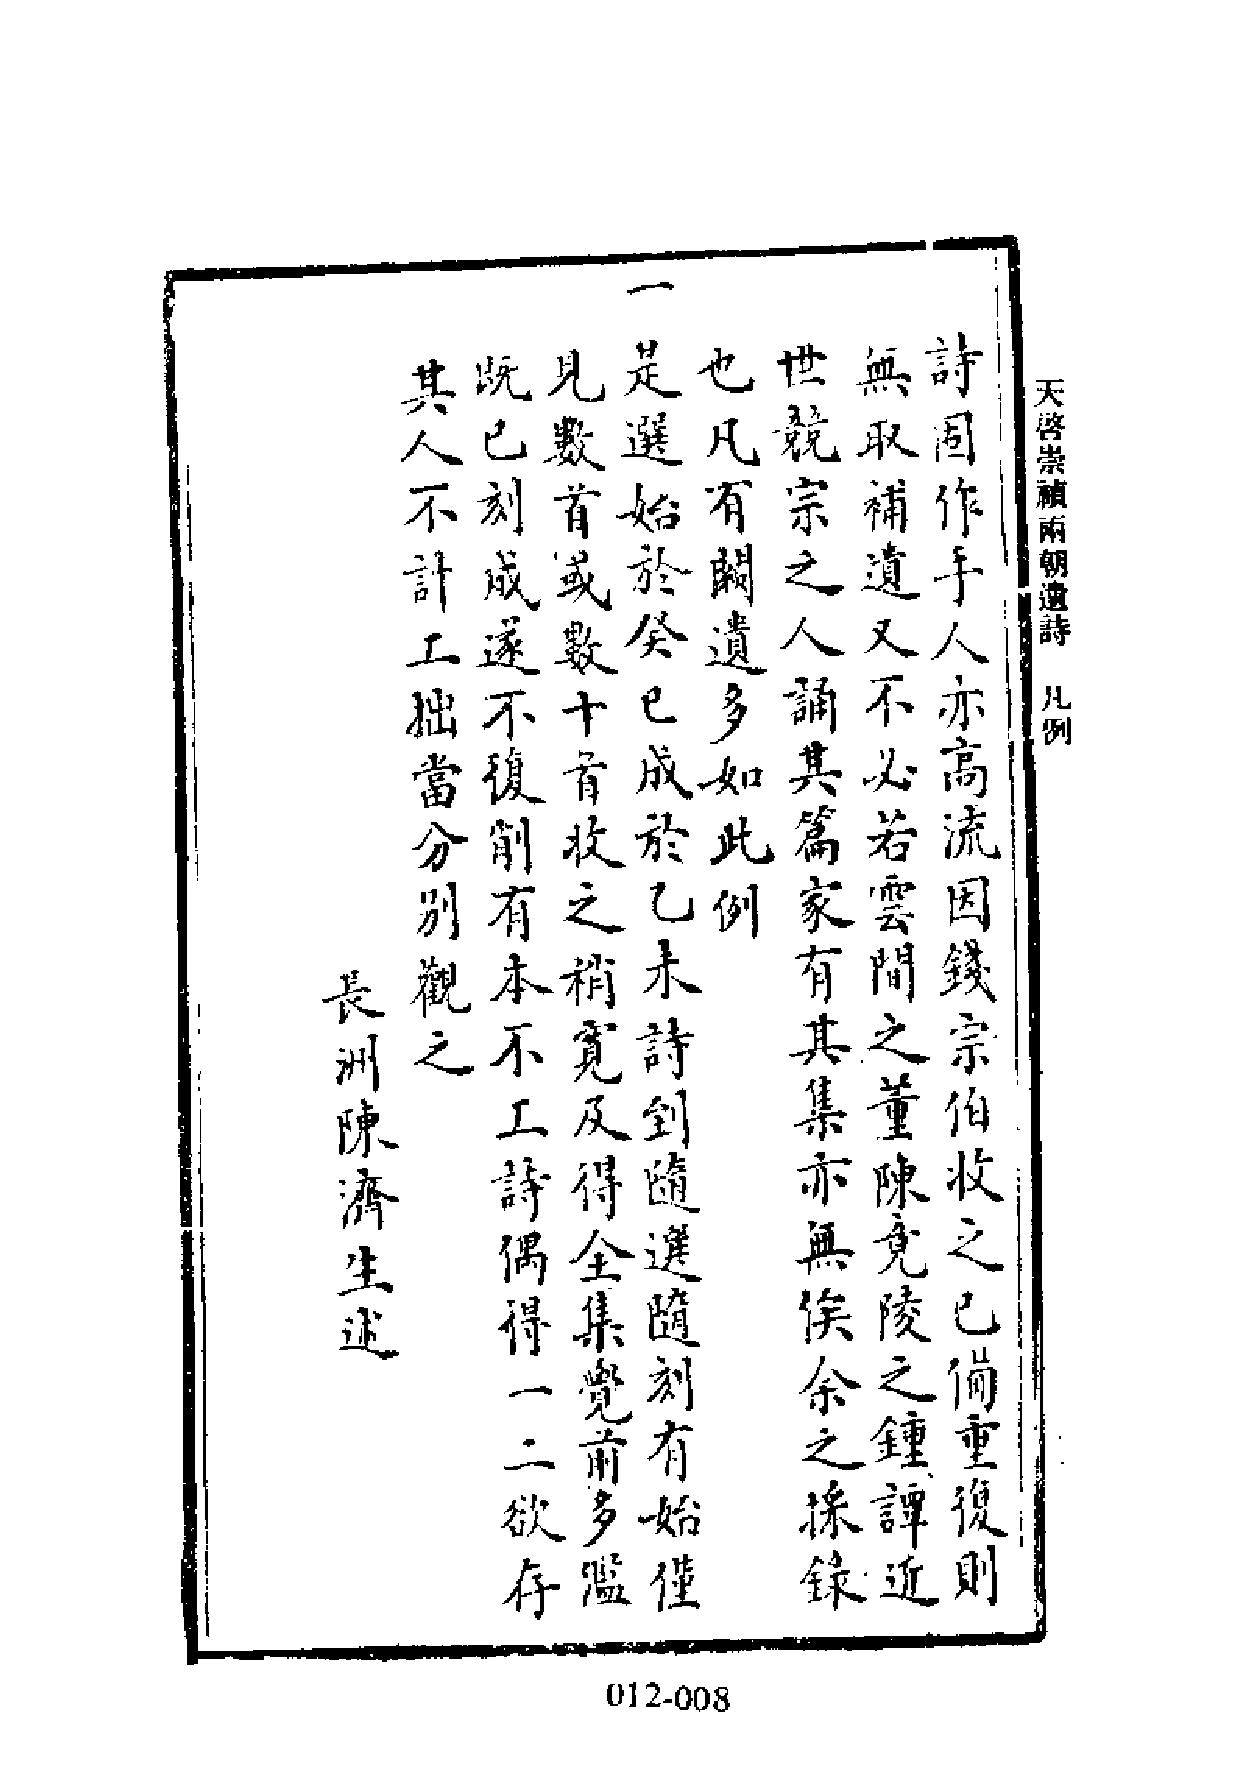 天啓崇禎兩朝遺詩　凡例
詩固作手人亦高流因錢宗伯收之已備重復則
無取補遺又不必若雲間之董陳竟陵之鍾譚近
世競宗之人誦其篇家有其集亦無俟余之採錄
也凡有闕遺多如此例
一是選始於癸巳成於乙未詩到隨選隨刻有始僅
見數首或數十首收之稍寬及得全集覺前多濫
既已刻成遂不復削有本不工詩偶得一二欲存
其人不計工拙當分別觀之
長洲陳濟生述
012-008